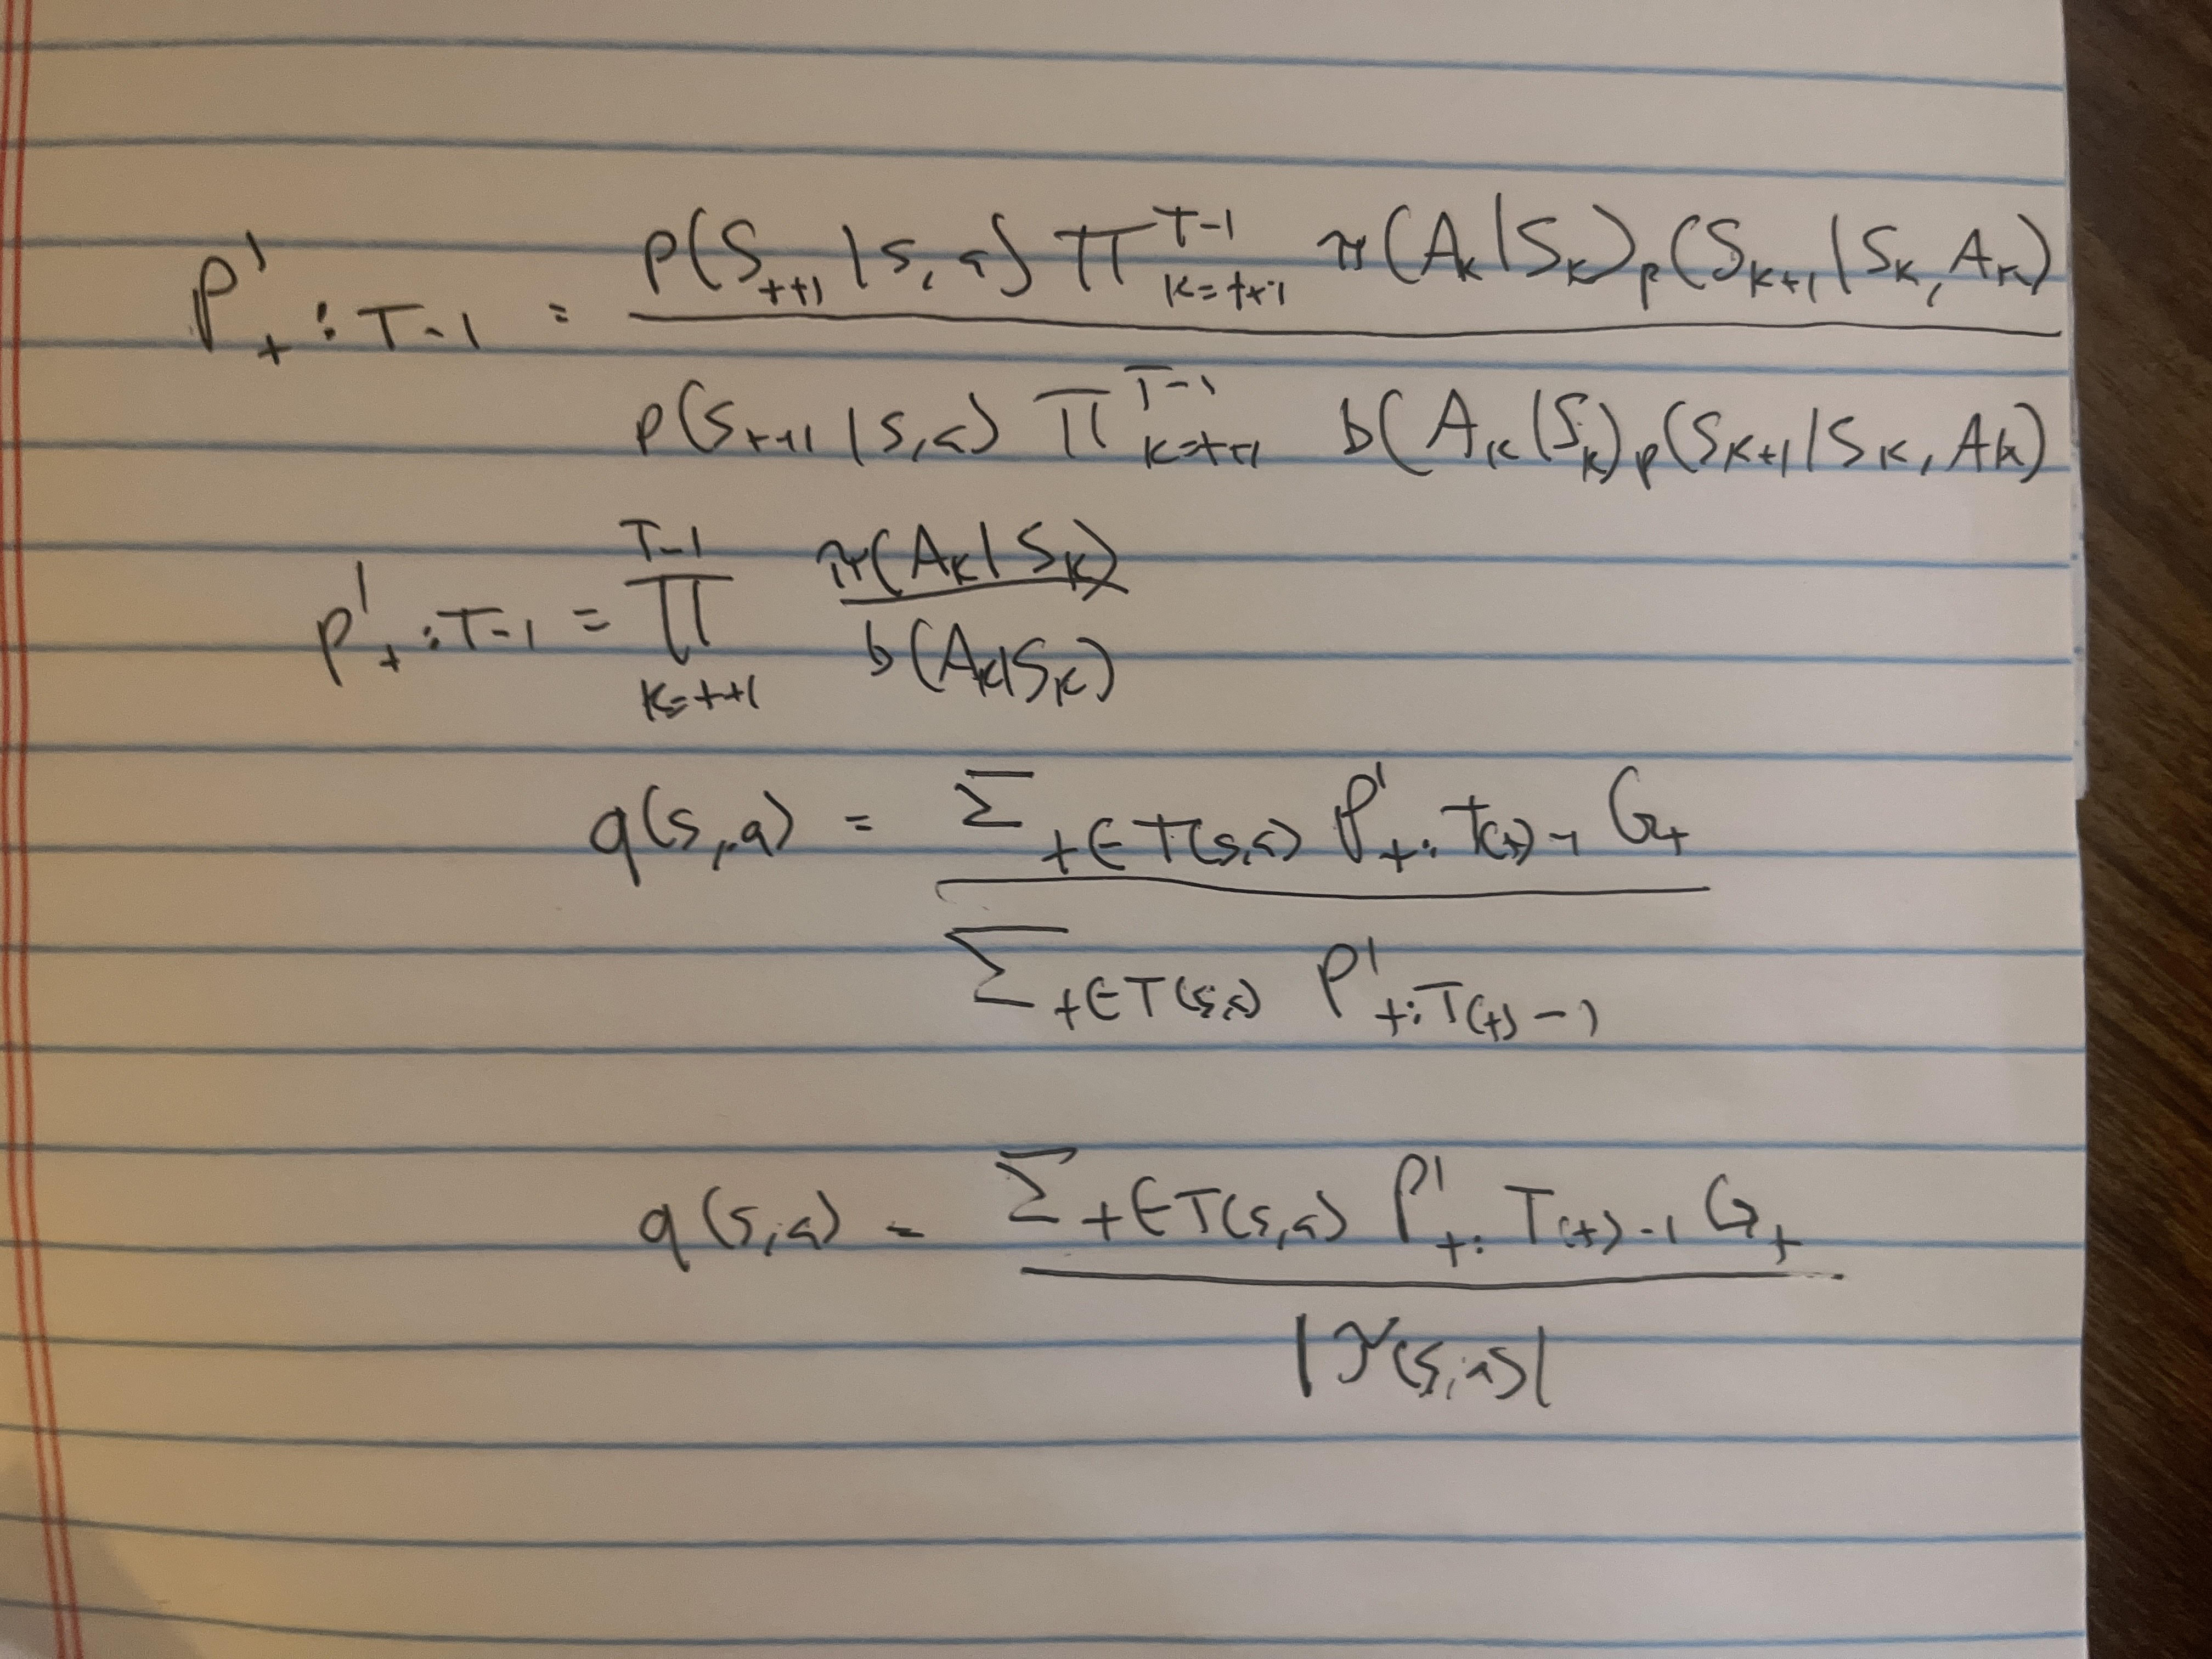 P'_{t:T-1} = \frac{p(S_{t+1}|s,a) \prod_{k=t+1}^{T-1} π(A_k|S_k) p(S_{k+1}|S_k, A_k)}{p(S_{t+1}|s,a) \prod_{k=t+1}^{T-1} b(A_k|S_k) p(S_{k+1}|S_k, A_k)}
P'_{t:T-1} = \prod_{k=t+1}^{T-1} \frac{π(A_k|S_k)}{b(A_k|S_k)}
q(s,a) = \frac{\sum_{t∈T(s,a)} P'_{t:T(t)-1} G_t}{\sum_{t∈T(s,a)} P'_{t:T(t)-1}}
q(s,a) = \frac{\sum_{t∈T(s,a)} P'_{t:T(t)-1} G_t}{|𝒯(s,a)|}